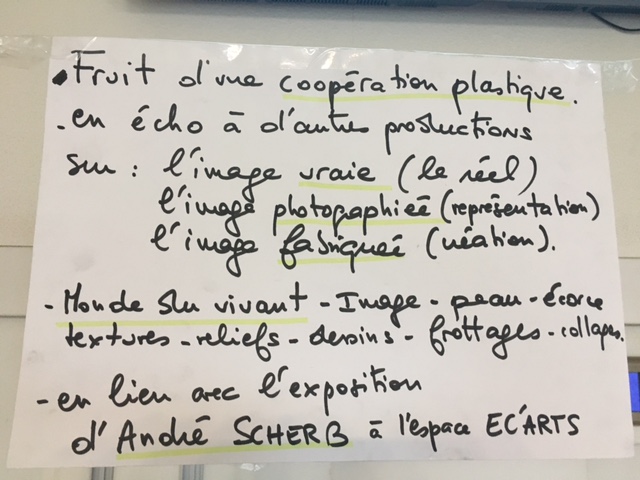 • Fruit d'une coopération plastique.
- en écho à d'autres productions
sur : l'image vraie (le réel)
l'image photographiée (représentation)
l'image fabriquée (création).
- Monde du vivant - Image - peau - écorce
textures - reliefs - dessins - frottages - collages.
- en lien avec l'exposition
d'André SCHERB à l'espace EC'ARTS